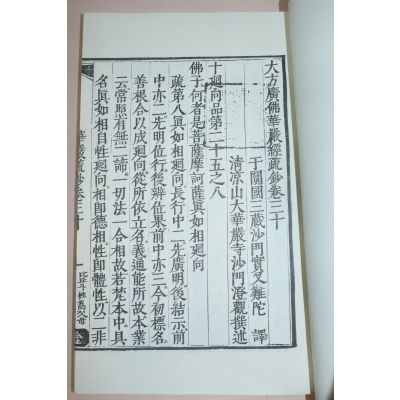 大方廣佛華嚴經疏鈔卷三十
于闐國三藏沙門實叉難陀 譯
清凉山大華嚴寺沙門澄觀撰述
十迴向品第二十五之八
佛子何者是菩薩摩訶薩眞如相迴向
疏第八眞如相迴向長行中二先廣明後結示前
中亦二先明位行後辨位果前中亦三今初標名
善根合以成迴向從所依立名義通能所故本業
云常照有無二諦一切法一合相故若梵本中具
名眞如相自性迴向相即德相性即體性以二非
華嚴疏鈔卷三十
一